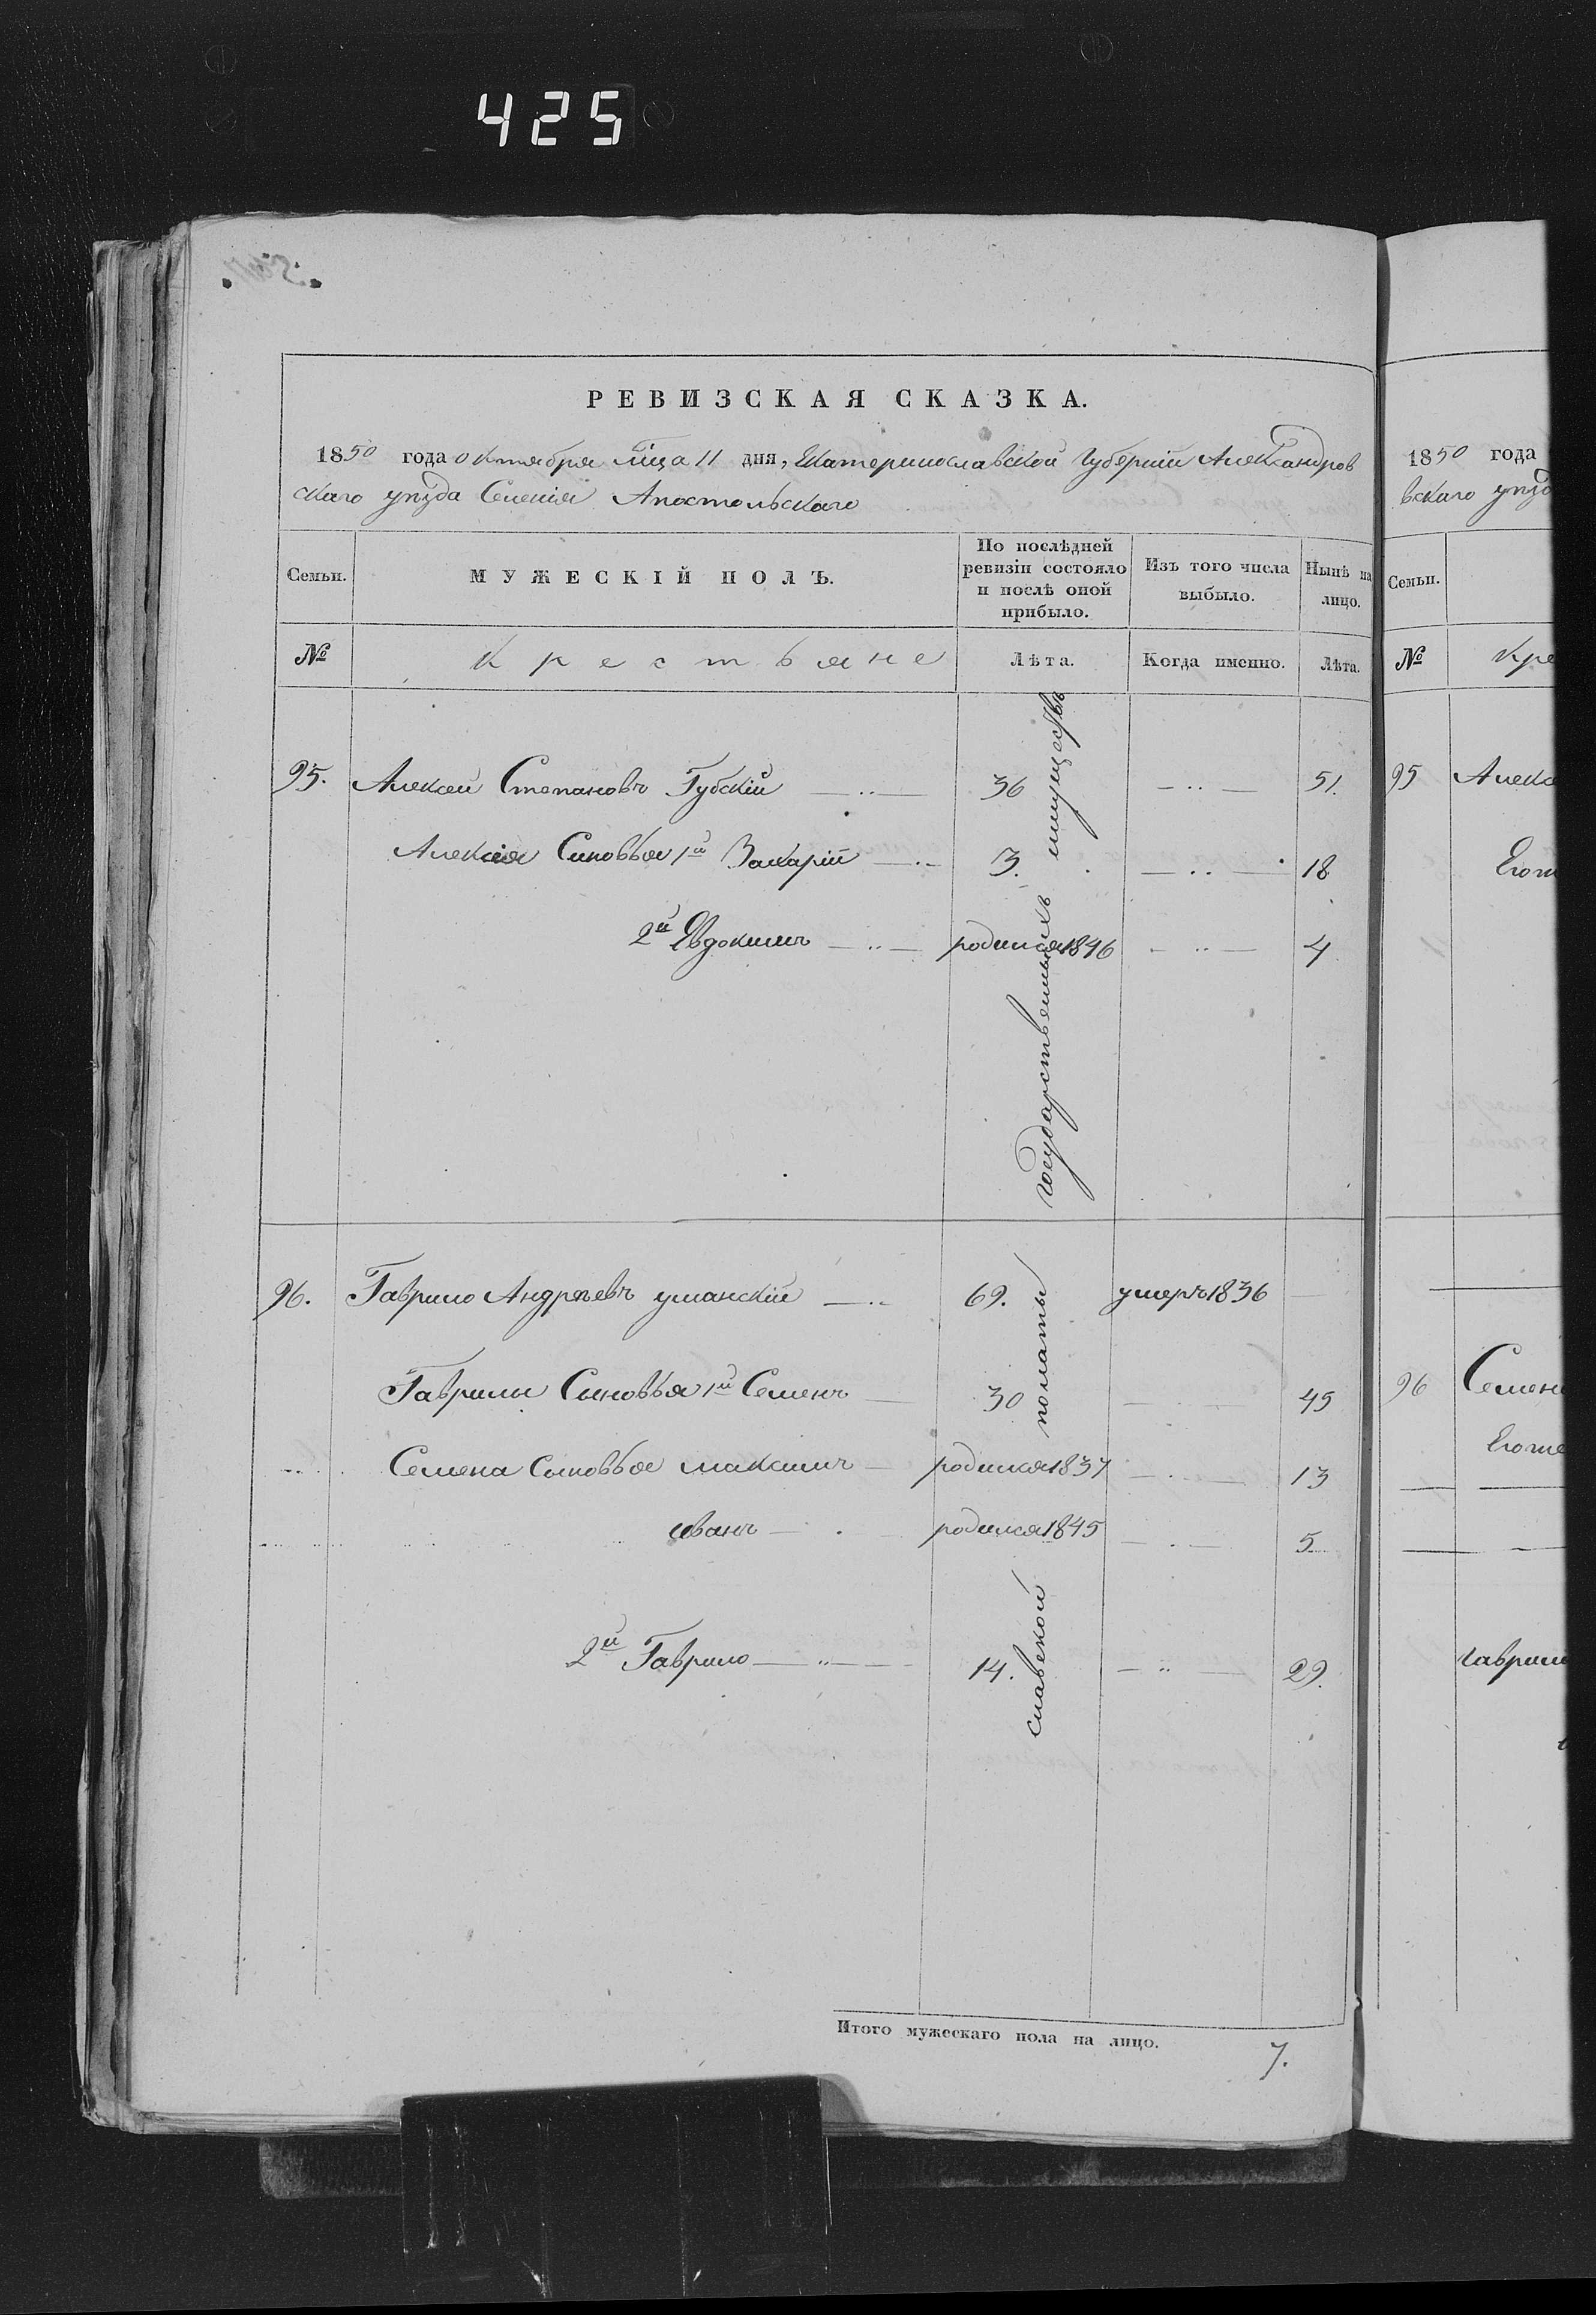 425
РЕВИЗСКАЯ СКАЗКА.
1850 года октября м͠ца 11 дня, Екатеринославской губерніи Александров
скаго уѣзда Селенія Апостольскаго
Семьи. МУЖЕСКІЙ ПОЛЪ. По послѣдней ревизіи состояло и послѣ оной прибыло. Изъ того числа выбыло. Нынѣ на лицо.
№ Крестьяне Лѣта. Когда именно. Лѣта.
95. Алексей Степановъ Губскій 36 51.
Алексѣя Синовья 1й Захарій 3. 18
2й Евдокимъ родился 1846 4
96. Гаврило Андрѣевъ уманскій 69. умеръ 1836
Гаврилы Синовья 1й Семенъ 30 45
Семена Сыновья максимъ родился 1837 13
иванъ родился 1845 5
2й Гаврило 14. 29.
славской полаты государственныхъ имуществъ
Итого мужескаго пола на лицо. 7.
1850 года
вскаго уѣзд
Семьи.
№ Кре
95 Алекс
Егож
96 Семен
Егоже
Гаврил